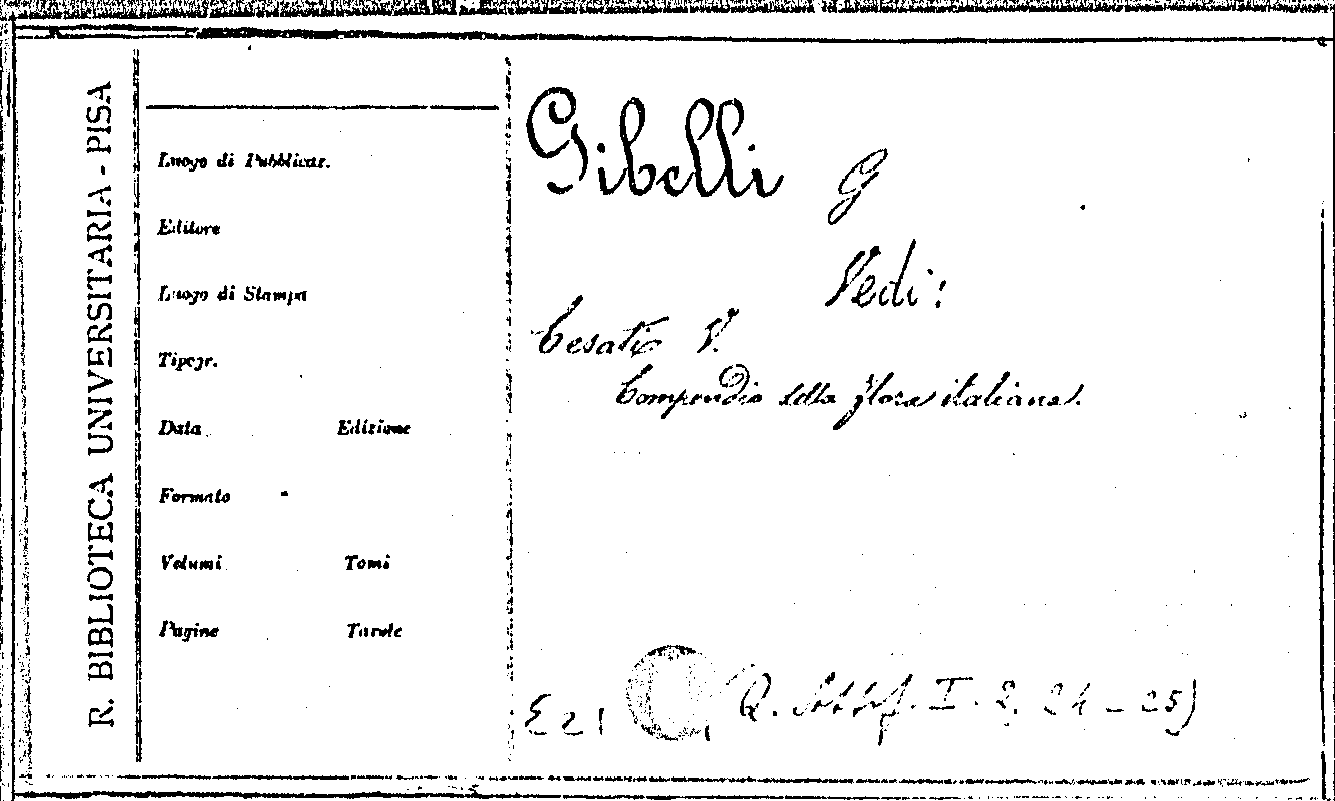 R. BIBLIOTECA UNIVERSITARIA - PISA
Luogo di Pubblicaz.
Editore
Luogo di Stampa
Tipogr.
Data Edizione
Formato
Volumi Tomi
Pagine Tavole
Gibelli G
Vedi:
Cesati V.
Compendio della flora italiana.
Q. I. 2. 24-25)